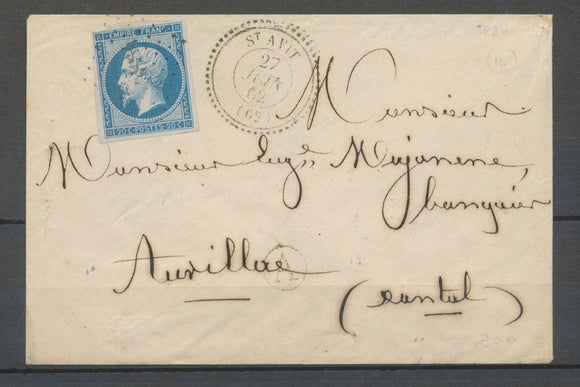 EMPIRE FRANC.
20 C. POSTES 20 C.
ST AVIT
27
62
(62)
Monsieur
Monsieur Eugè Mujanene,
banquier
Aurillac
A
(Cantal)